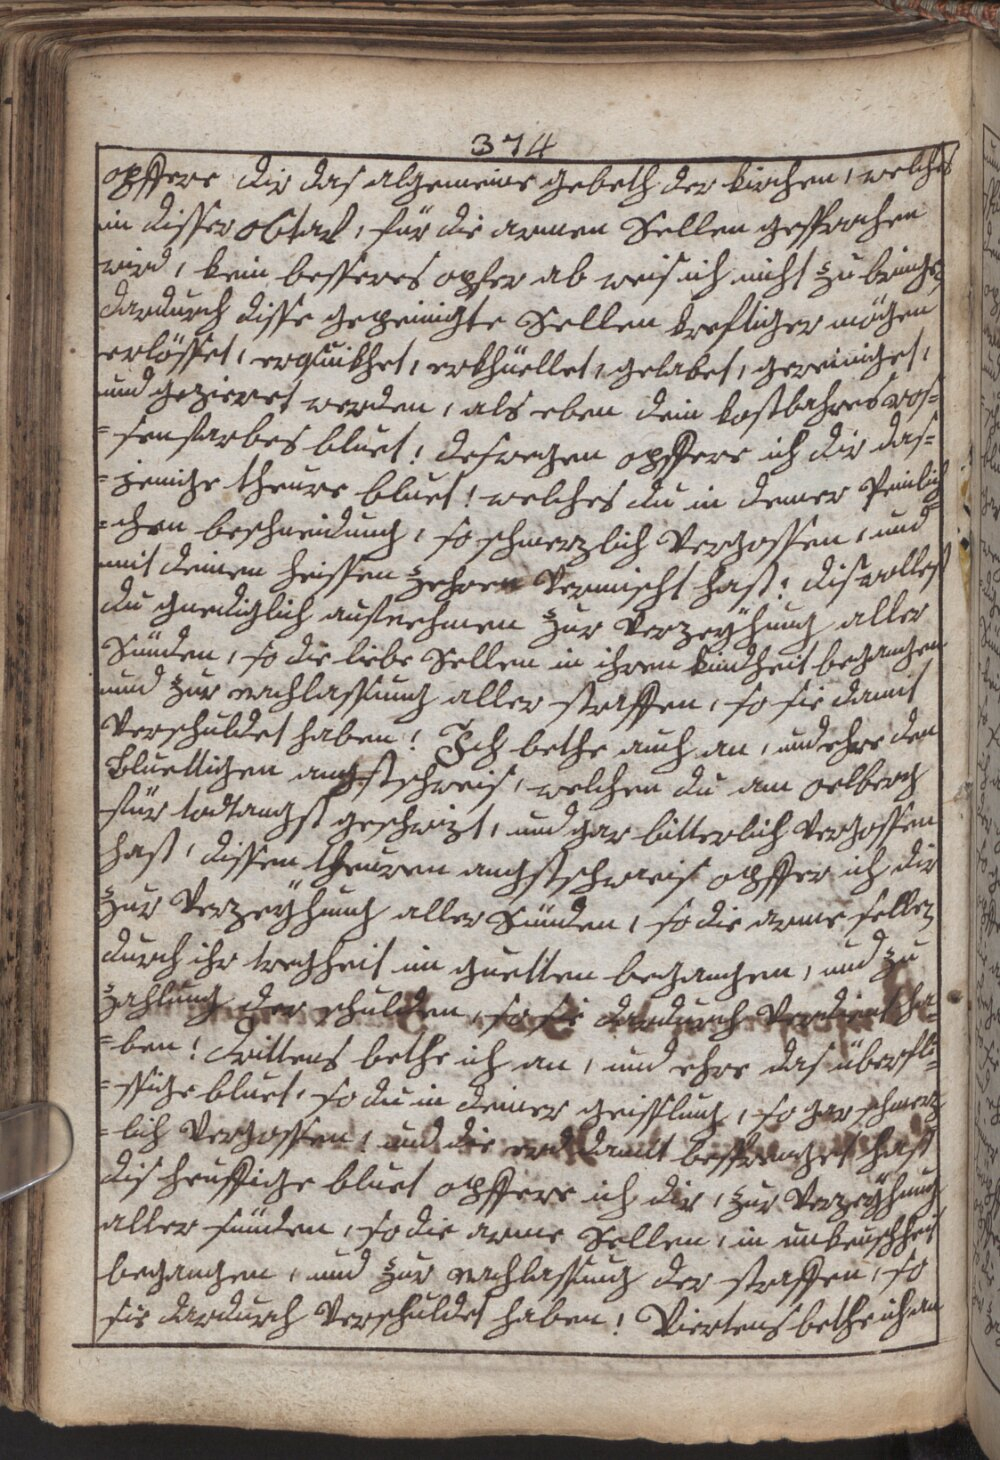 374
opffere dir das algemeine gebeth der kirchen, welches
in disser octav, für die armen Sellen gesprochen
wird, kein besseres opfer ab weis ich nicht zu bringen
dardurch disse gepeinigte Sellen kreftiger mögen
erlösset, erquikhet, erkhüellet, gelabet, gereiniget,
und gezieret werden, als eben dein kostbahres ros=
=senfarbes bluet! deswegen opffere ich dir das=
=jenige theure bluet! welches du in deiner Peinlich
=chen beschneidung, so schmerzlich Vergossen, und
mit deinen heissen zehren Vermischt hast! dis wollest
du gnediglich aufnehmen zur Verzeÿhung aller
Sünden, so die liebe Sellen in ihren kindheit begangen
und zur nachlassung aller straffen, so sie damit
Verschuldet haben! Ich bethe auch an, und ehre den
Bluettigen angstschweis, welchen du am oelberg
für todtangst geschwizt, und gar bitterlich Vergossen
hast, dissen theuren angstschweis opffer ich dir
zur Verzeÿhung aller Sünden, so die arme sellen
durch ihr tregheit im guetten begangen, und zu
zahlung der schulden, so sie dardurch Verdient ha=
=ben! drittens bethe ich an, und ehre das überflü=
=ssige bluet, so du in deiner geisslung, so gar schmerz
=lich Vergossen, und die erd damit besprenget hast
dis heuffige bluet opffere ich dir, zur Verzeÿhung
aller sünden, so die arme Sellen, in unkeuschheit
begangen, und zur nachlassung der straffen, so
sie dardurch Verschuldet haben! Viertens bethe ich an